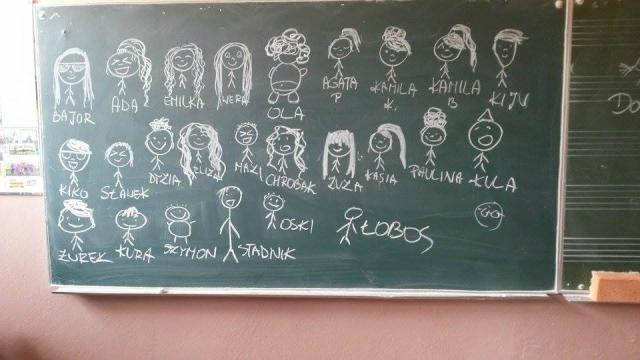 BAJOR ADA EMILKA WERA OLA AGATA P KAMILA K. KAMILA B KIJU
KIKO SŁAWEK DYZIA ELIZA MAXI CHROBAK ZUZA KASIA PAULINA KULA
ŻUREK KURA SZYMON STADNIK OSKI ŁOBOS